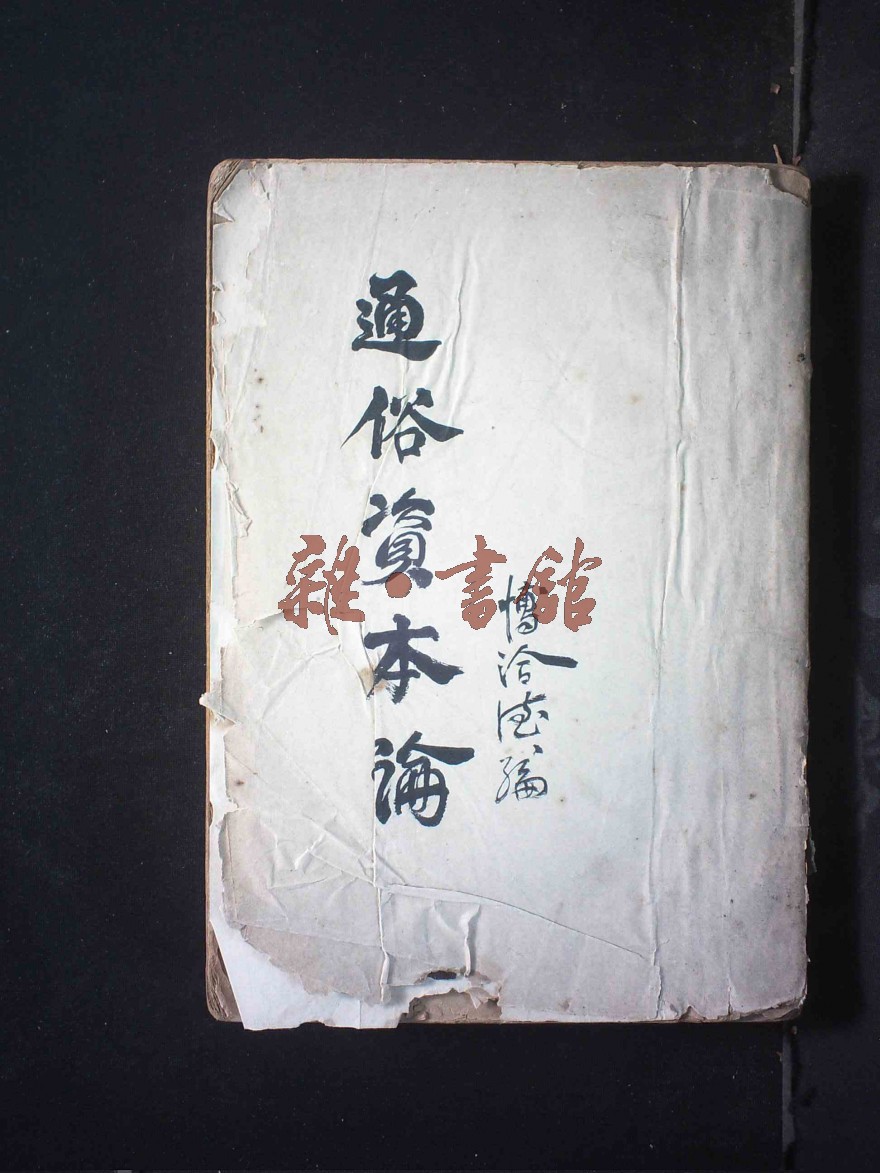 通俗資本論
博洽德編
雜·書館